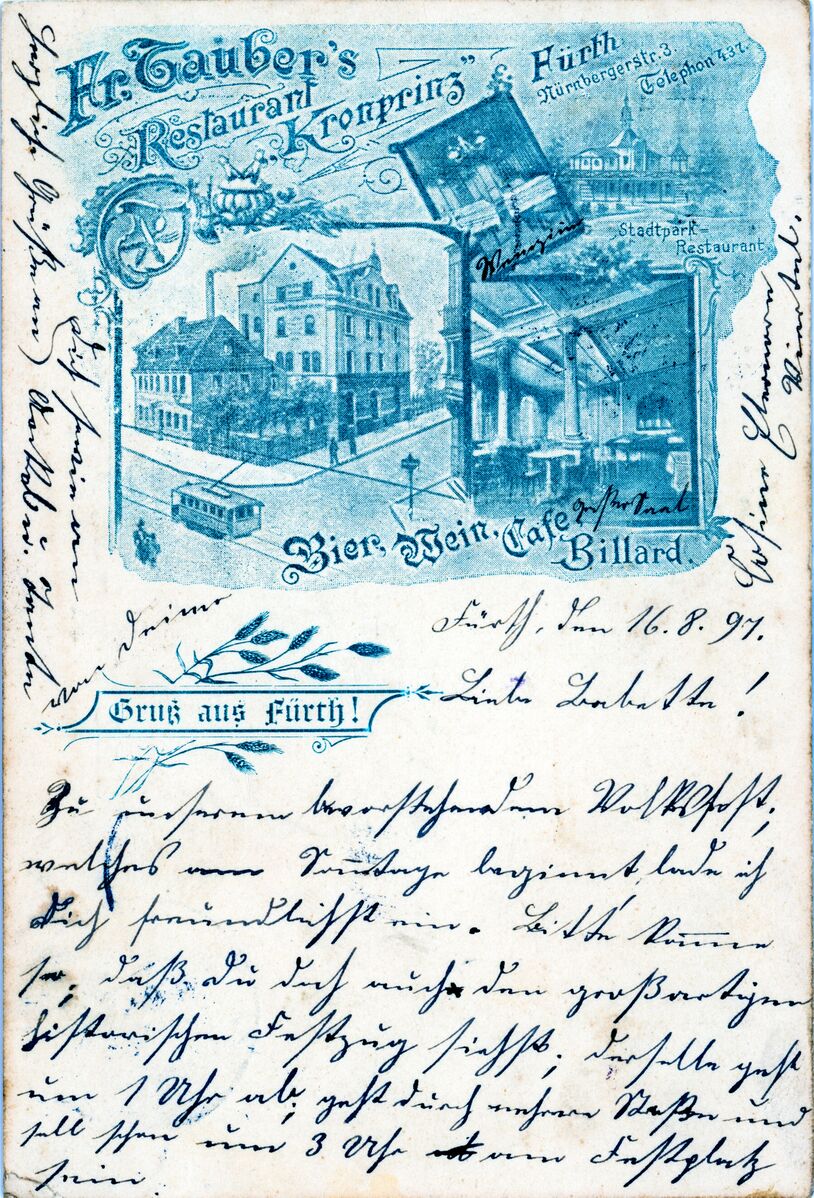 Fr. Tauber's
Restaurant
"Kronprinz"
Fürth
Nürnbergerstr. 3.
Telephon 437.
Stadtpark-
Restaurant
Weinzimmer
Bier, Wein, Cafe
Billard.
großer Saal
Gruß aus Fürth!
Fürth, den 16.8.97.
Liebe Babette!
Zu unserem bevorstehendem Volksfest,
welches am Sonntage beginnt, lade ich
Dich freundlichst ein. Bitte komme
so, daß Du doch auch den großartigen
historischen Festzug siehst, derselbe geht
um 1 Uhr ab, geht durch mehrere Straße und
soll schon um 3 Uhr am Festplatz
sein.
Herzliche Grüße an
Dich sowie an
Onkel u. Tante
von Deiner